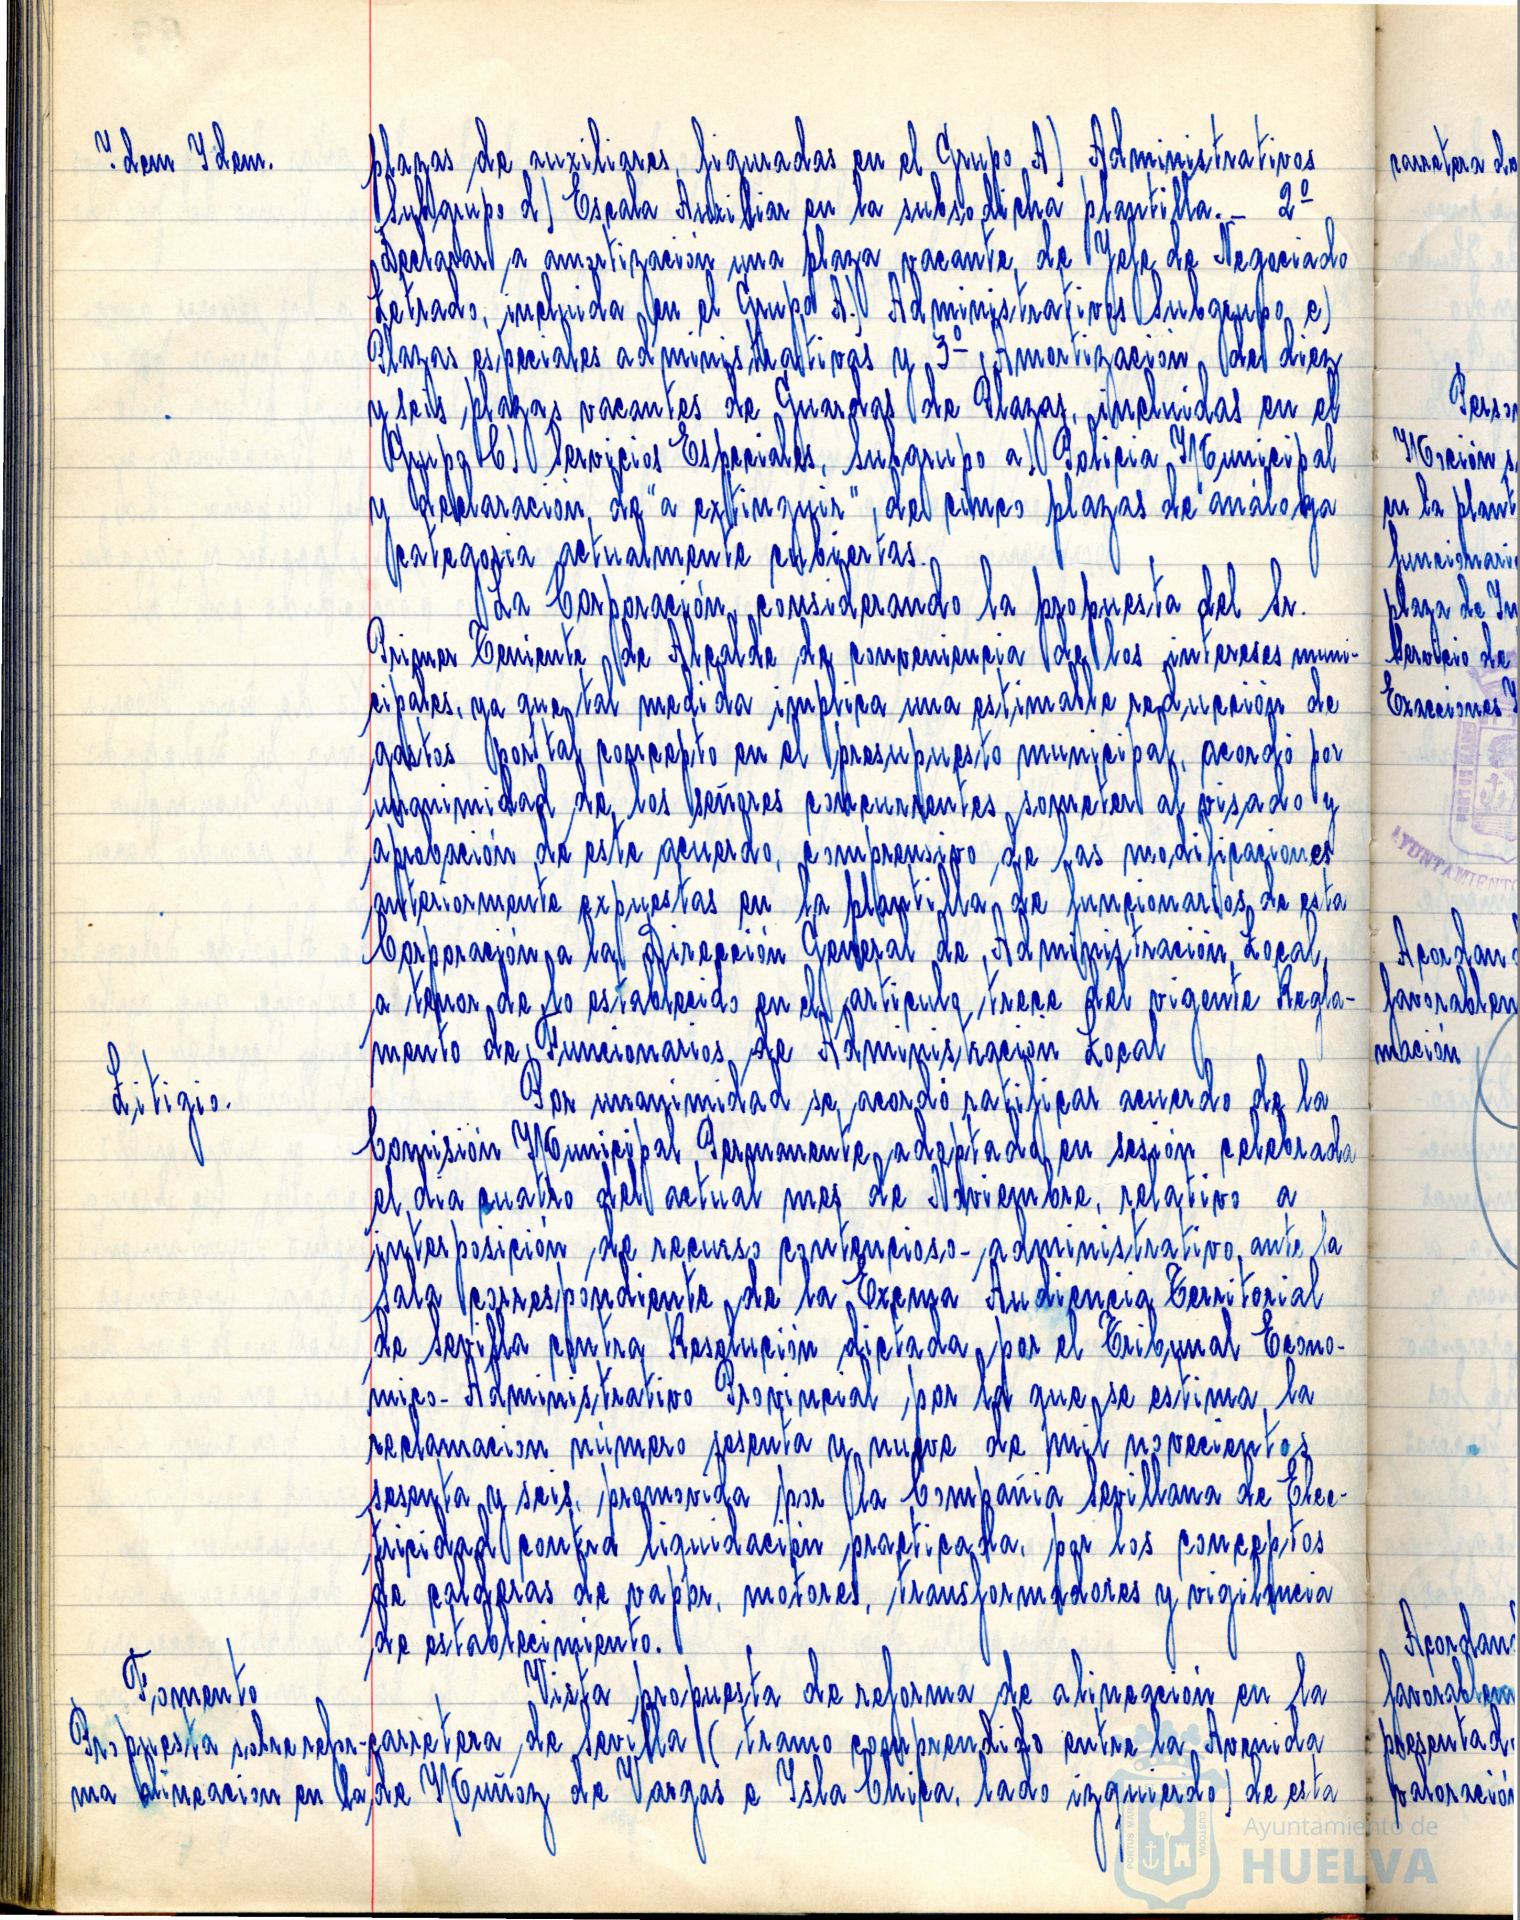 Idem Idem.
plazas de auxiliares, figuradas en el Grupo A) Administrativos
Subgrupo d) Escala Auxiliar en la subsodicha plantilla._ 2º
Declarar a amortización una plaza vacante, de Jefe de Negociado
Letrado, incluida en el Grupo A) Administrativos Subgrupo e)
Plazas especiales administrativas y 3º Amortización de diez
y seis plazas vacantes de Guardas de Plazas, incluidas en el
Grupo C) Servicios Especiales, subgrupo a) Policia Municipal
y declaración, de "a extinguir", de cinco plazas de análoga
categoria actualmente cubiertas.
La Corporación, considerando la propuesta del Sr.
Primer Teniente de Alcalde de conveniencia de los intereses muni-
cipales, ya que tal medida implica una estimable reducción de
gastos por tal concepto en el presupuesto municipal, acordó por
unanimidad de los señores concurrentes someter al visado y
aprobación de este acuerdo, comprensivo de las modificaciones
anteriormente expuestas en la plantilla de funcionarios de esta
Corporación a la Dirección General de Administración Local,
a tenor de lo establecido en el articulo trece del vigente Regla-
mento de Funcionarios de Administración Local
Litigio.
Por unanimidad se acordó ratificar acuerdo de la
Comisión Municipal Permanente adoptado en sesión celebrada
el dia cuatro del actual mes de Noviembre, relativo a
interposición de recurso contencioso-administrativo ante la
Sala correspondiente de la Excma Audiencia Territorial
de Sevilla contra Resolución dictada por el Tribunal Econo-
mico-Administrativo Provincial por la que se estima la
reclamacion número sesenta y nueve de mil novecientos
sesenta y seis, promovida por la Compañia Sevillana de Elec-
tricidad contra liquidación practicada, por los conceptos
de calderas de vapor, motores, transformadores y vigilancia
de establecimiento.
Fomento
Propuesta sobre refor-
ma alineacion en la
Vista propuesta de reforma de alineación en la
carretera de Sevilla (tramo comprendido entre la Avenida
de Muñoz de Vargas e Isla Chica, lado izquierdo) de esta
carretera de
Moción
en la
plaza de
Servicio de
Exacciones
AYUNTAMIENTO
mación
Ayuntamiento de
HUELVA